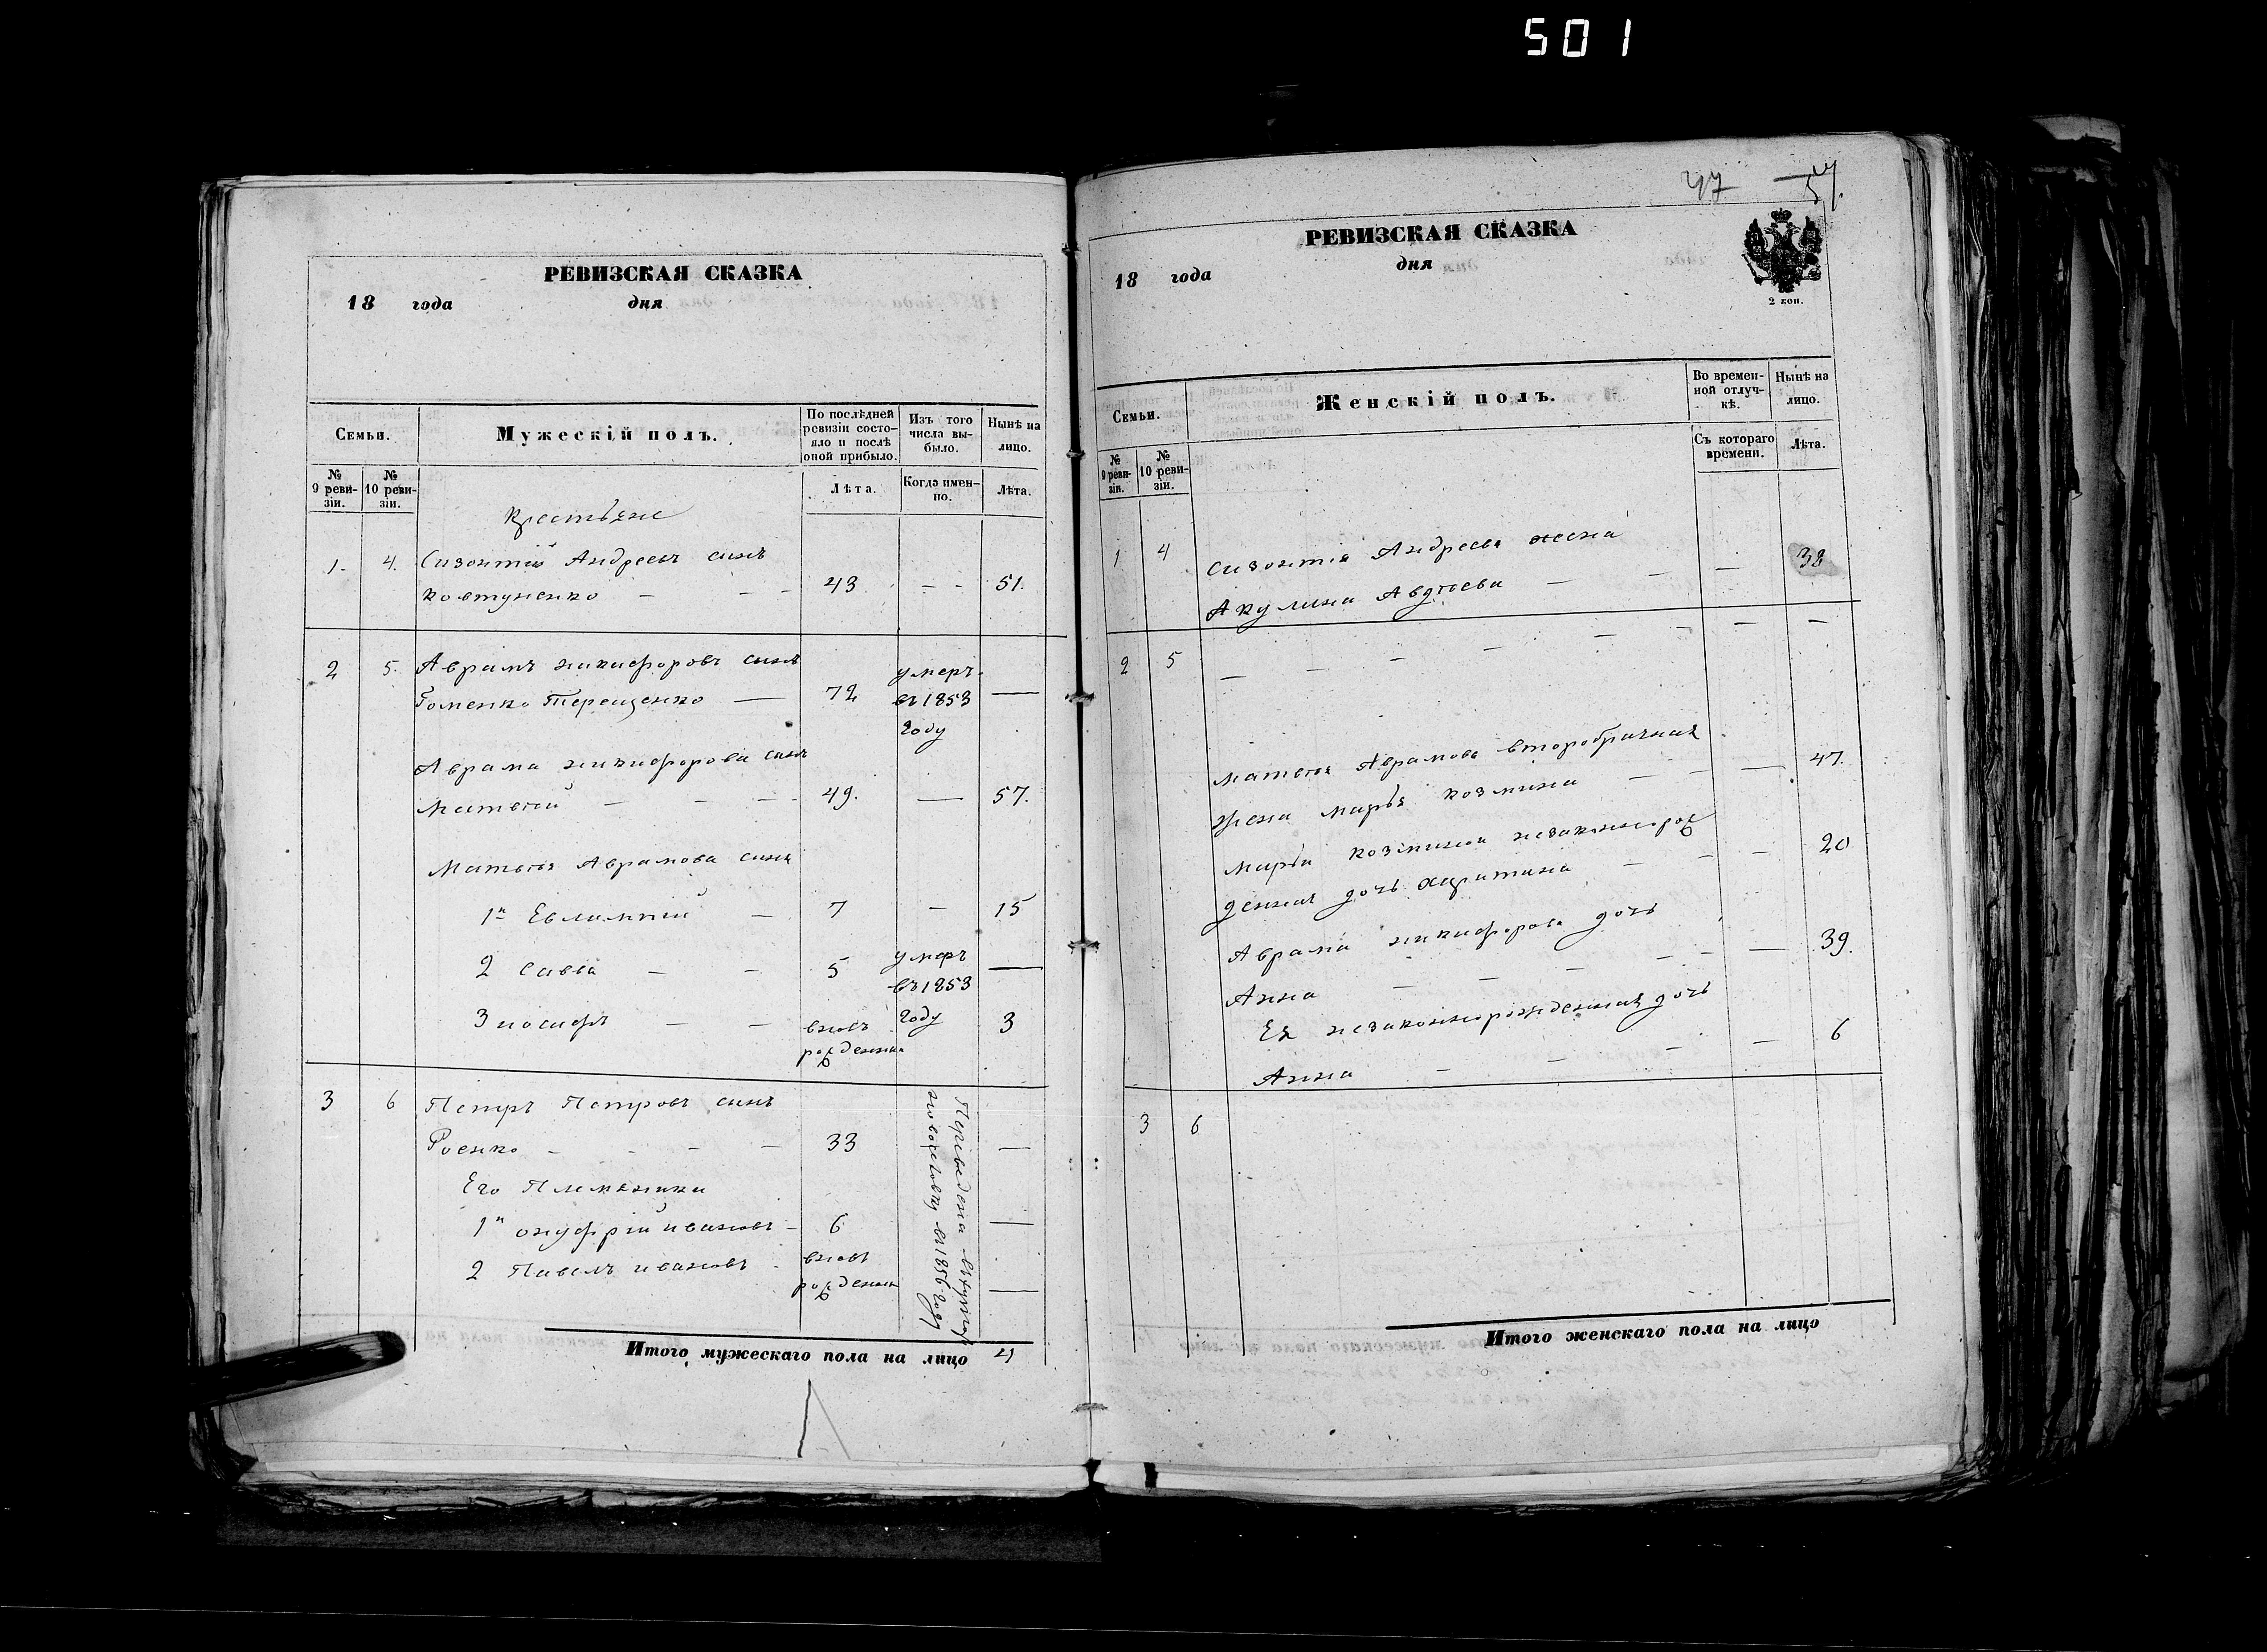 501
РЕВИЗСКАЯ СКАЗКА
18 года дня
Семьи.
Мужескій полъ.
По послѣдней ревизіи состояло и послѣ оной прибыло.
Изъ того числа выбыло.
Нынѣ на лицо.
№ 9 ревизіи.
№ 10 ревизіи.
Лѣта.
Когда именно.
Лѣта.
Крестьяне
1. 4. Сизонтій Андреевъ сынъ
Ковтуненко — — — 43 — — 51.
2 5. Аврамъ никифоровъ сынъ умеръ
Гоменко Терещенко — 72 въ 1853 —
году
Аврама никифорова сынъ
Матвей — — — 49. — 57.
Матвея Аврамова сыны
1й Евлампий — 7 — 15
2 савва — — 5 умеръ —
въ 1853
3 иосифъ — — вновь году 3
рожденный
3 6 Петръ Петровъ сынъ
Роенко — — — — 33 —
Его Племянники
1й онуфрій ивановъ — 6 —
2 Павелъ ивановъ - вновь
рожденный —
Переведены
въ 1856 году
Итого мужескаго пола на лицо 4
47 57.
РЕВИЗСКАЯ СКАЗКА
18 года дня
2 коп.
Семьи.
Женскій полъ.
Во временной отлучкѣ.
Нынѣ на лицо.
№ 9 ревизіи.
№ 10 ревизіи.
Съ котораго времени.
Лѣта.
1 4 сизонтія Андреева жена
Акулина Авдеева — — — 38
2 5 — — — — — — —
матвея Аврамова второбрачная
жена марья козмина — — — 47.
марьи козминой незаконнорож
денная дочь харитина — — — 20
Аврама никифорова дочь
Анна — — — — — — 39.
Ея незаконнорожденная дочь
Анна — — — — 6
3 6
Итого женскаго пола на лицо